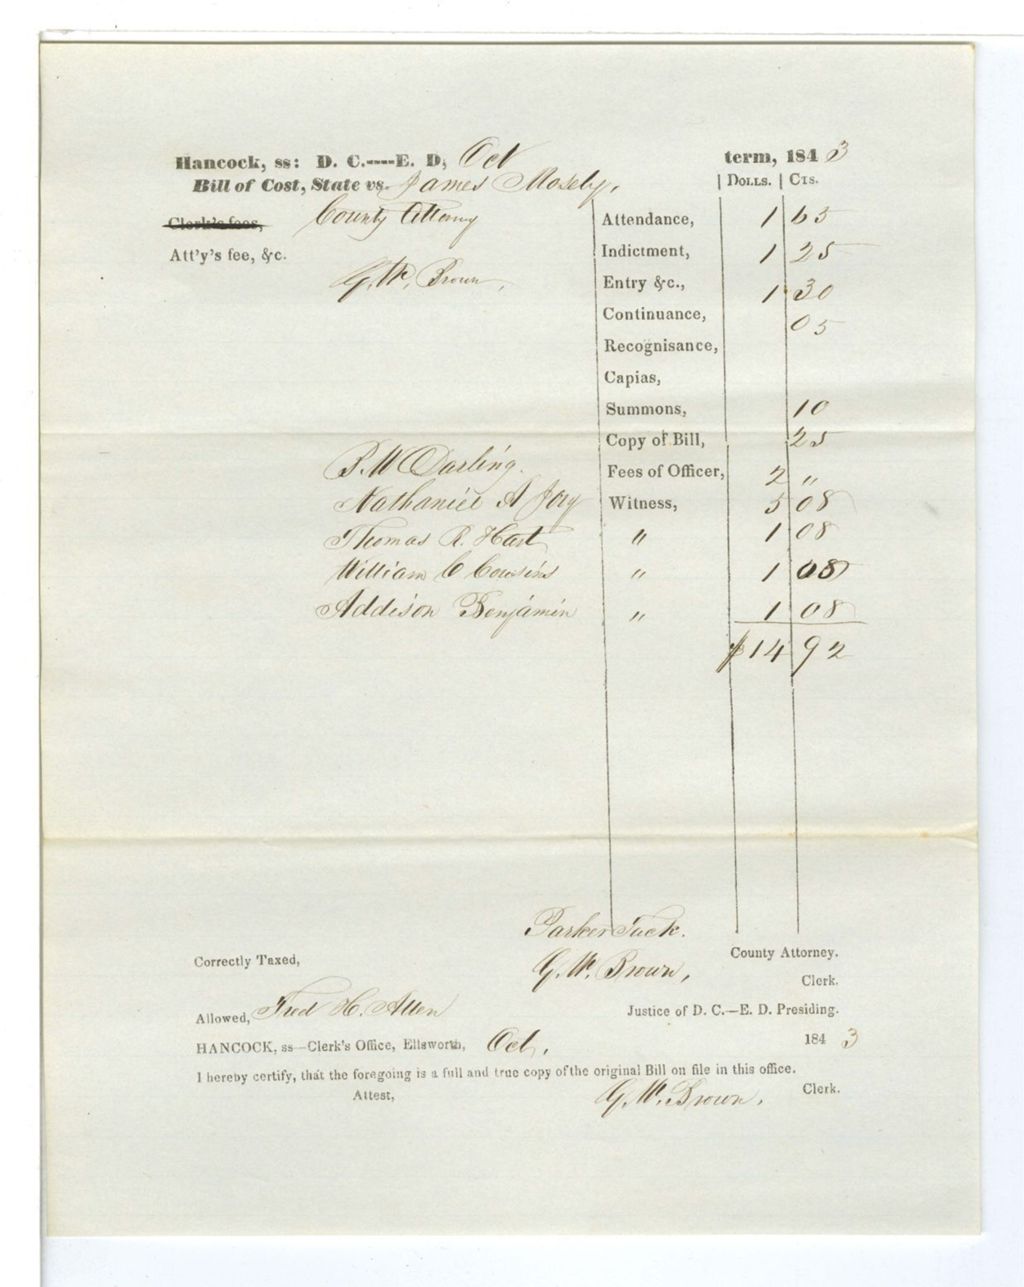 Hancock, ss: D. C.----E. D, Oct term, 1843
Bill of Cost, State vs. James Mosely, | DOLLS. | CTS.
Clerk's fees, County Attorney Attendance, 1 65
Att'y's fee, &c. Indictment, 1 25
G. W. Brown, Entry &c., 1 30
Continuance, 05
Recognisance,
Capias,
Summons, 10
Copy of Bill, 25
B. W Darling. Fees of Officer, 2 "
Nathaniel A Joy Witness, 5 08
Thomas R. Hart " 1 08
William C Cousins " 1 08
Addison Benjamin " 1 08
$14 92
Parker Tuck. County Attorney.
Correctly Taxed, G. W. Brown, Clerk.
Allowed, Fred H. Allen Justice of D. C.—E. D. Presiding.
HANCOCK, ss—Clerk's Office, Ellsworth, Oct, 1843
I hereby certify, that the foregoing is a full and true copy of the original Bill on file in this office.
Attest, G. W. Brown, Clerk.